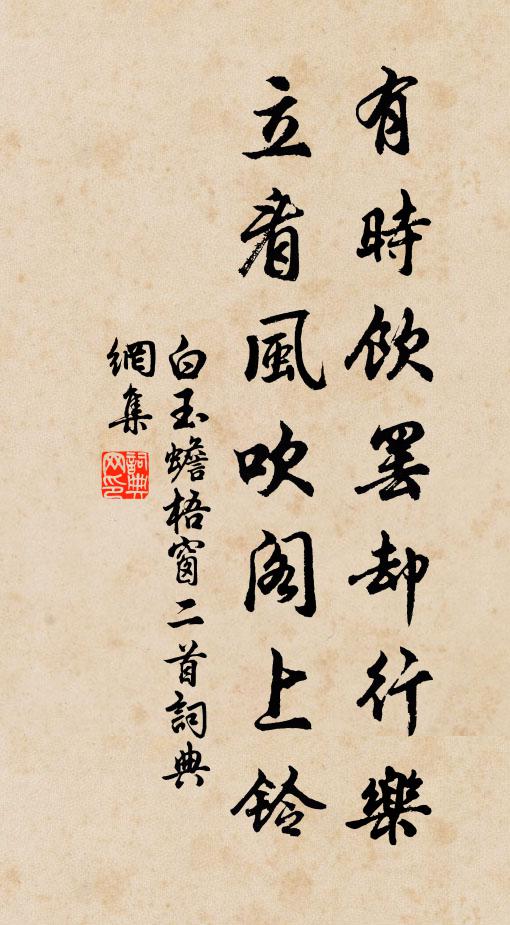 有時飲罷却行樂
立看風吹閣上鈴
白玉蟾梧窗二首詞典
網集
詞典
网印